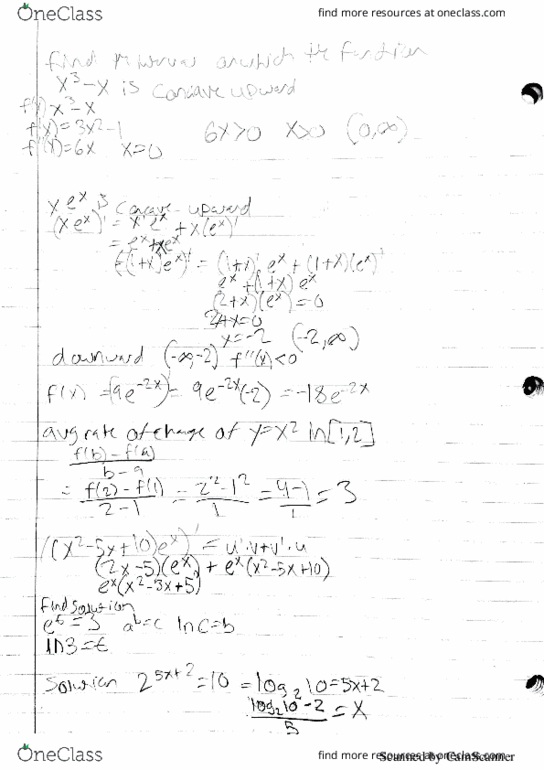 OneClass
find more resources at oneclass.com
find intervals on which the function
x³-x is concave upward
f(x) x³-x
f'(x)=3x²-1
6x>0 x>0 (0,∞)
f''(x)=6x x=0
xeˣ is concave-upward
(xeˣ)' = x'eˣ+x(eˣ)'
= eˣ+xeˣ
((1+x)eˣ)' = (1+x)'eˣ+(1+x)(eˣ)'
eˣ+(1+x)eˣ
(2+x)(eˣ)=0
2+x=0
x=-2 (-2,∞)
downward (-∞,-2) f''(x)<0
f(x)=(9e⁻²ˣ)'= 9e⁻²ˣ(-2)=-18e⁻²ˣ
avg rate of change of y=x² in[1,2]
f(b)-f(a)
b-a
= f(2)-f(1) = 2²-1² = 4-1 = 3
2-1 1 1
((x²-5x+10)eˣ)' = u'·v+v'·u
(2x-5)(eˣ)+eˣ(x²-5x+10)
eˣ(x²-3x+5)
Find solution
eᵗ=3 aᵇ=c lnc=b
ln3=t
Solution 2⁵ˣ⁺²=10 =log₂10=5x+2
log₂10-2 = x
5
OneClass
find more resources at oneclass.com
Scanned by CamScanner